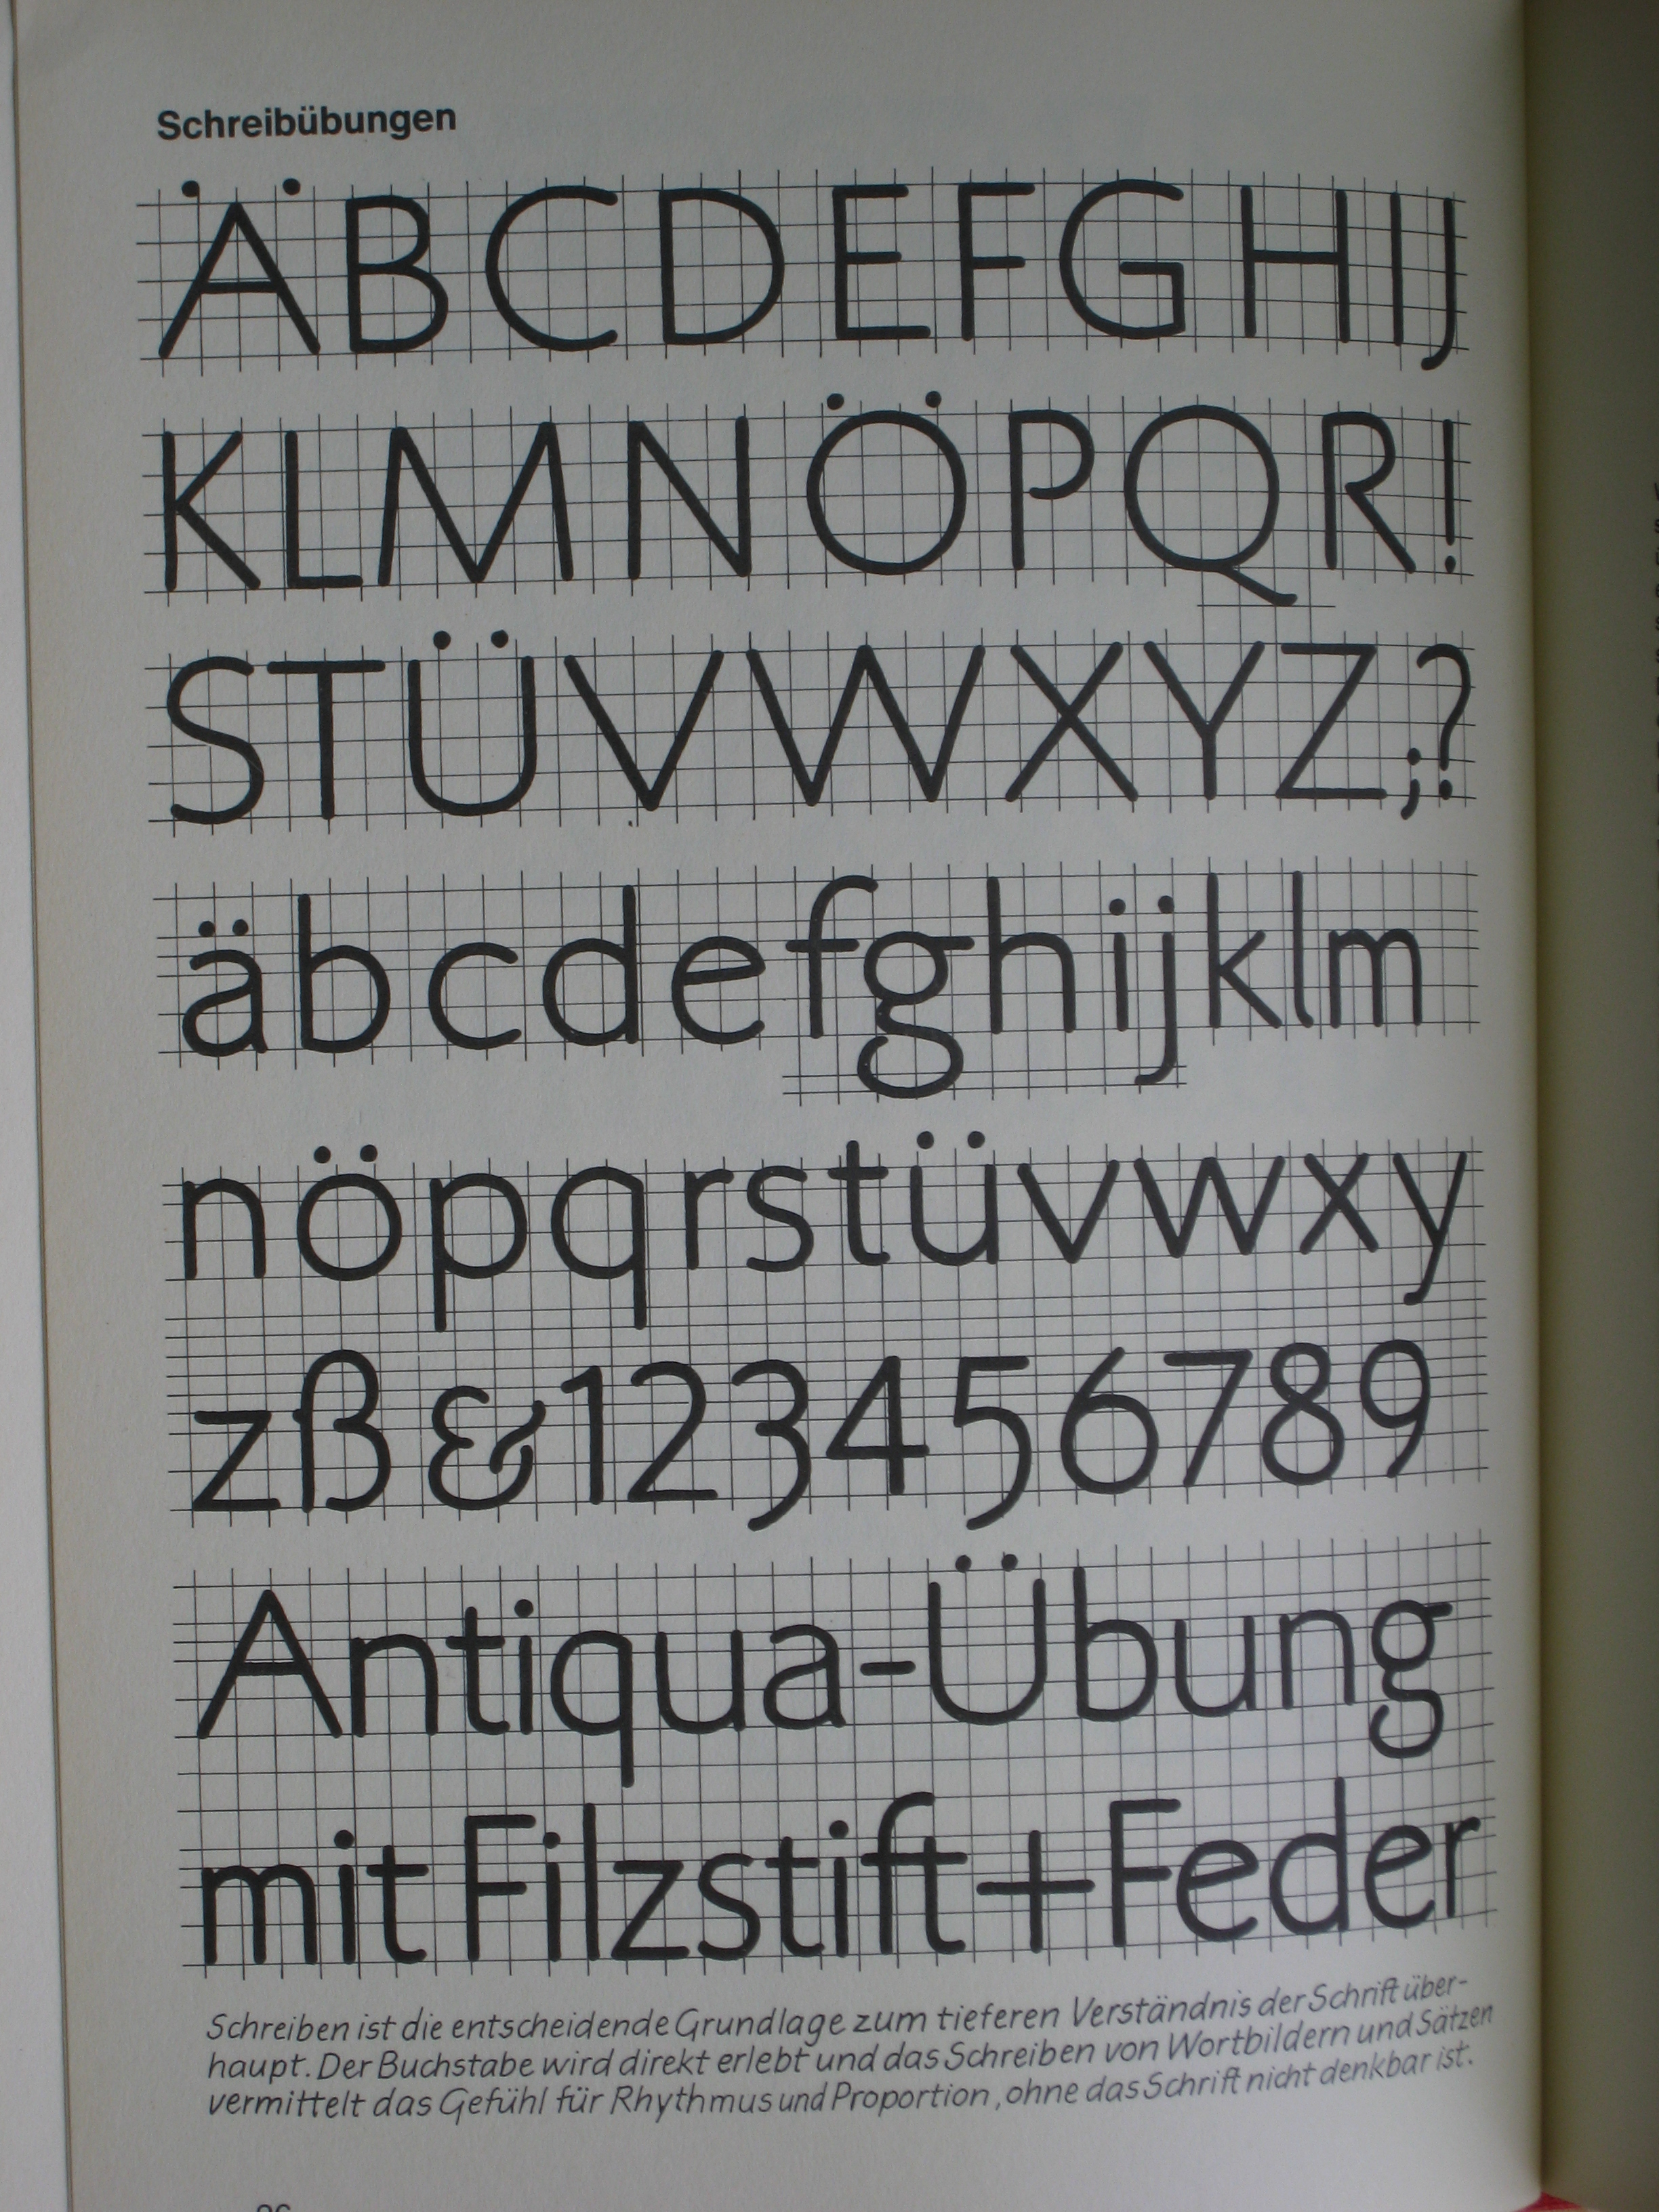 Schreibübungen
ÄBCDEFGHIJ
KLMNÖPQR!
STÜVWXYZ;?
äbcdefghijklm
nöpqrstüvwxy
zß&123456789
Antiqua-Übung
mit Filzstift+Feder
Schreiben ist die entscheidende Grundlage zum tieferen Verständnis der Schrift über-
haupt. Der Buchstabe wird direkt erlebt und das Schreiben von Wortbildern und Sätzen
vermittelt das Gefühl für Rhythmus und Proportion, ohne das Schrift nicht denkbar ist.